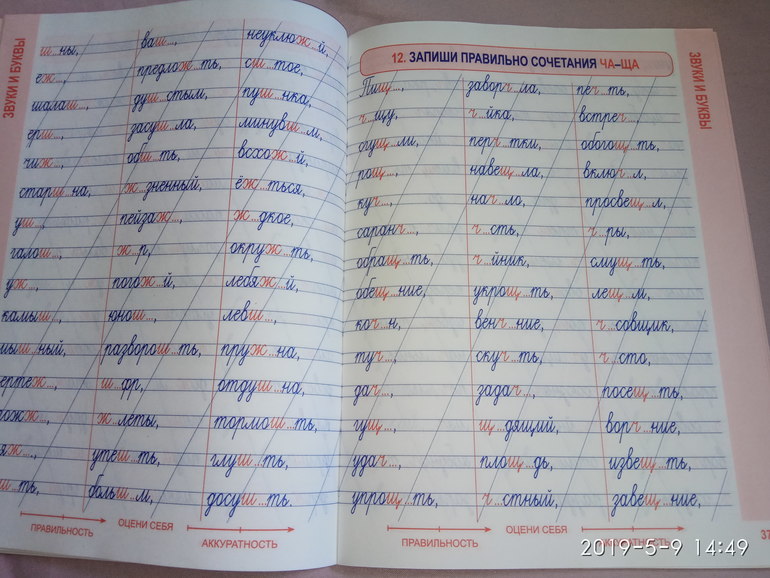 ЗВУКИ И БУКВЫ
ш...ны, ваш..., неуклюж...й,
еж..., предлож...ть, сш...тое,
шалаш..., душ...стым, пуш...нка,
ерш..., засуш...ла, минувш...м,
чиж..., обш...ть, всхож...й,
старш...на, ж...зненный, ёж...ться,
уш..., пейзаж..., ж...дкое,
галош..., ж...р, окруж...ть,
уж..., погож...й, лебяж...й,
камыш..., юнош..., левш...,
ш...ный, разворош...ть, пруж...на,
ш...фр, отдуш...на,
ж...леты, тормош...ть,
утеш...ть, глуш...ть,
ш...ть, больш...м, досуш...ть.
ПРАВИЛЬНОСТЬ ОЦЕНИ СЕБЯ АККУРАТНОСТЬ
12. ЗАПИШИ ПРАВИЛЬНО СОЧЕТАНИЯ ЧА–ЩА
ЗВУКИ И БУКВЫ
Пищ..., заворч...ла, печ...ть,
ч...щу, ч...йка, встреч...,
сгущ...ли, перч...тки, обогощ...ть,
рощ..., навещ...ла, включ...л,
куч..., нач...ло, просвещ...л,
саранч..., ч...сть, ч...ры,
обращ...ть, ч...йник, смущ...ть,
обещ...ние, укрощ...ть, лещ...м,
коч...н, венч...ние, ч...совщик,
туч..., скуч...ть, ч...сто,
дач..., задач..., посещ...ть,
гущ..., щ...дящий, ворч...ние,
удач..., площ...дь, извещ...ть,
упрощ...ть, ч...стный, завещ...ние,
ПРАВИЛЬНОСТЬ ОЦЕНИ СЕБЯ АККУРАТНОСТЬ
37
2019-5-9 14:49